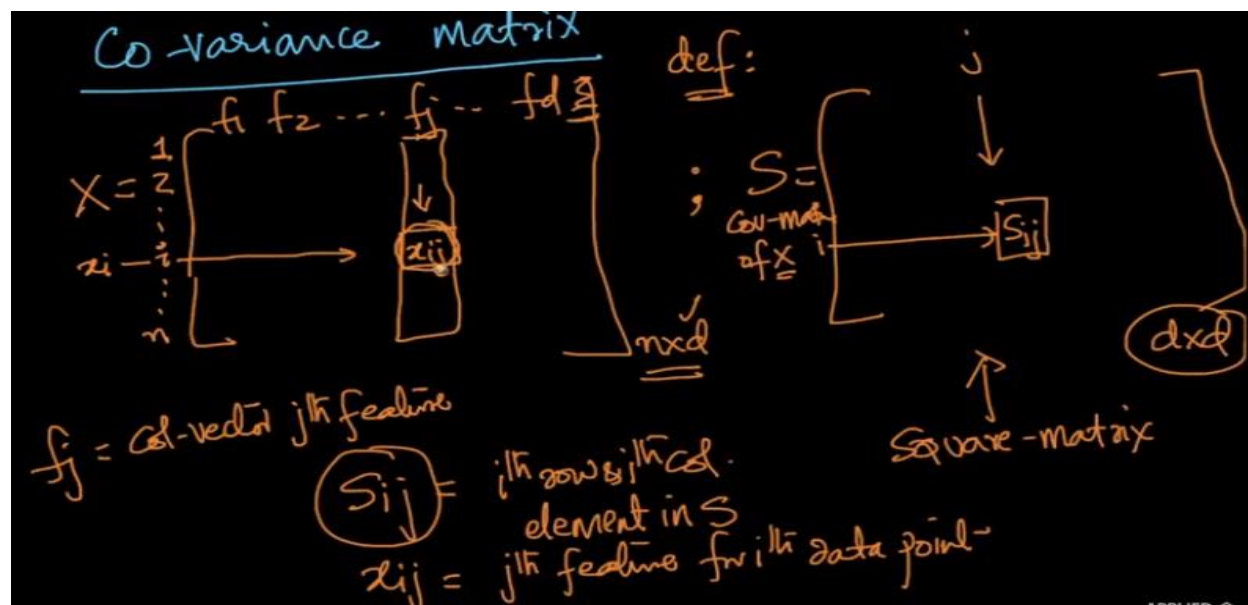 Co-variance matrix
def:
j
f1 f2 ... fj ... fd
1
X = 2
⋮
xi — i
⋮
n
xij
n×d
; S =
Cov-mat
of X
i
Sij
d×d
Square-matrix
fj = col-vector jth feature
Sij = ith row & jth col.
element in S
xij = jth feature for ith data point